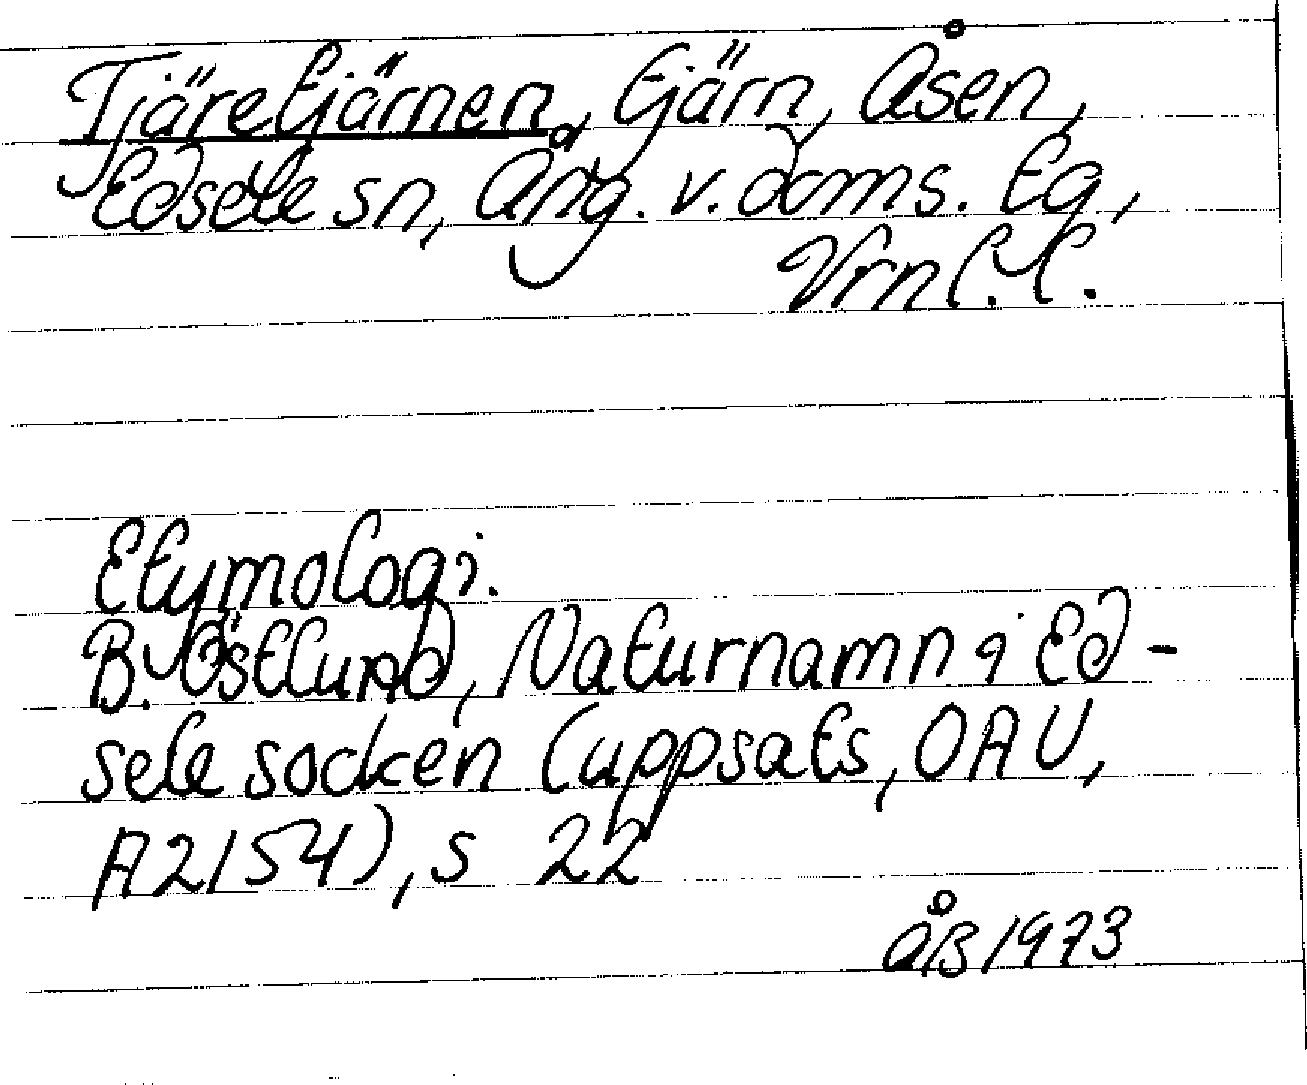 Tjäretjärnen, tjärn, Åsen,
Edsele sn, Ång. v. doms. tg,
Vrnl.l.
Etymologi.
B. Östlund, Naturnamn i Ed-
sele socken (uppsats, OAU,
A2154), s 22
ÅB 1973